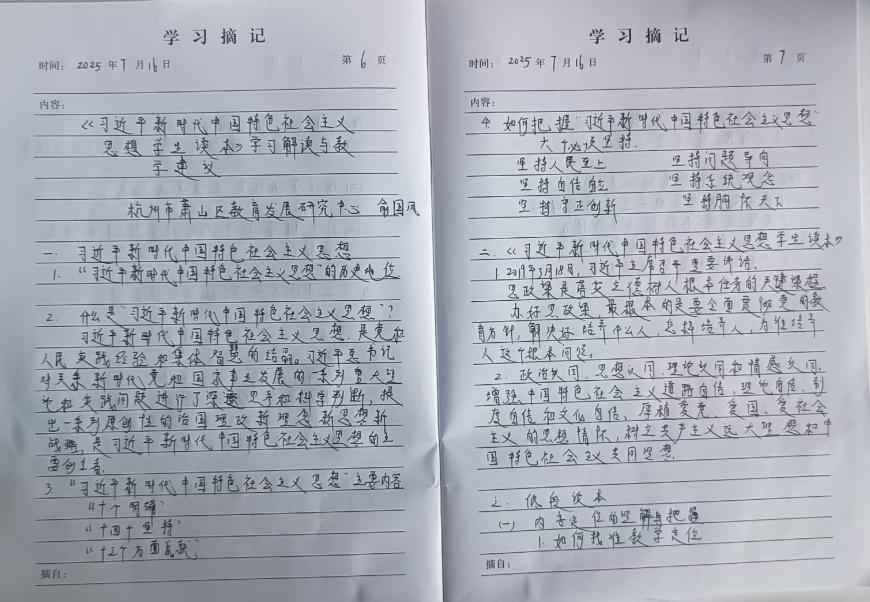 学习摘记
时间：2025年7月16日 第6页
内容：
《习近平新时代中国特色社会主义
思想学生读本》学习解读与教
学建议
杭州市萧山区教育发展研究中心 俞国凤
一. 习近平新时代中国特色社会主义思想
1. “习近平新时代中国特色社会主义思想”的历史地位
2. 什么是“习近平新时代中国特色社会主义思想”？
习近平新时代中国特色社会主义思想，是党和
人民实践经验和集体智慧的结晶。习近平总书记
对关系新时代党和国家事业发展的一系列重大理
论和实践问题进行了深邃思考和科学判断，提
出一系列原创性的治国理政新理念新思想新
战略，是习近平新时代中国特色社会主义思想的主
要创立者。
3. “习近平新时代中国特色社会主义思想”主要内容
“十个明确”
“十四个坚持”
“十三个方面成就”
摘自：
学习摘记
时间：2025年7月16日 第7页
内容：
4. 如何把握“习近平新时代中国特色社会主义思想”
六个必须坚持.
坚持人民至上 坚持问题导向
坚持自信自立 坚持系统观念
坚持守正创新 坚持胸怀天下
二.《习近平新时代中国特色社会主义思想学生读本》
1. 2019年3月18日，习近平主席召开重要讲话.
思政课是落实立德树人根本任务的关键课程
办好思政课，最根本的是要全面贯彻党的教
育方针，解决好培养什么人，怎样培养人，为谁培养
人这个根本问题。
2. 政治认同、思想认同、理论认同和情感认同.
增强中国特色社会主义道路自信、理论自信、制
度自信和文化自信，厚植爱党、爱国、爱社会
主义的思想情怀，树立共产主义远大理想和中
国特色社会主义共同思想.
三. 低段读本
(一) 内容定位的理解与把握
1. 如何找准教学定位
摘自：